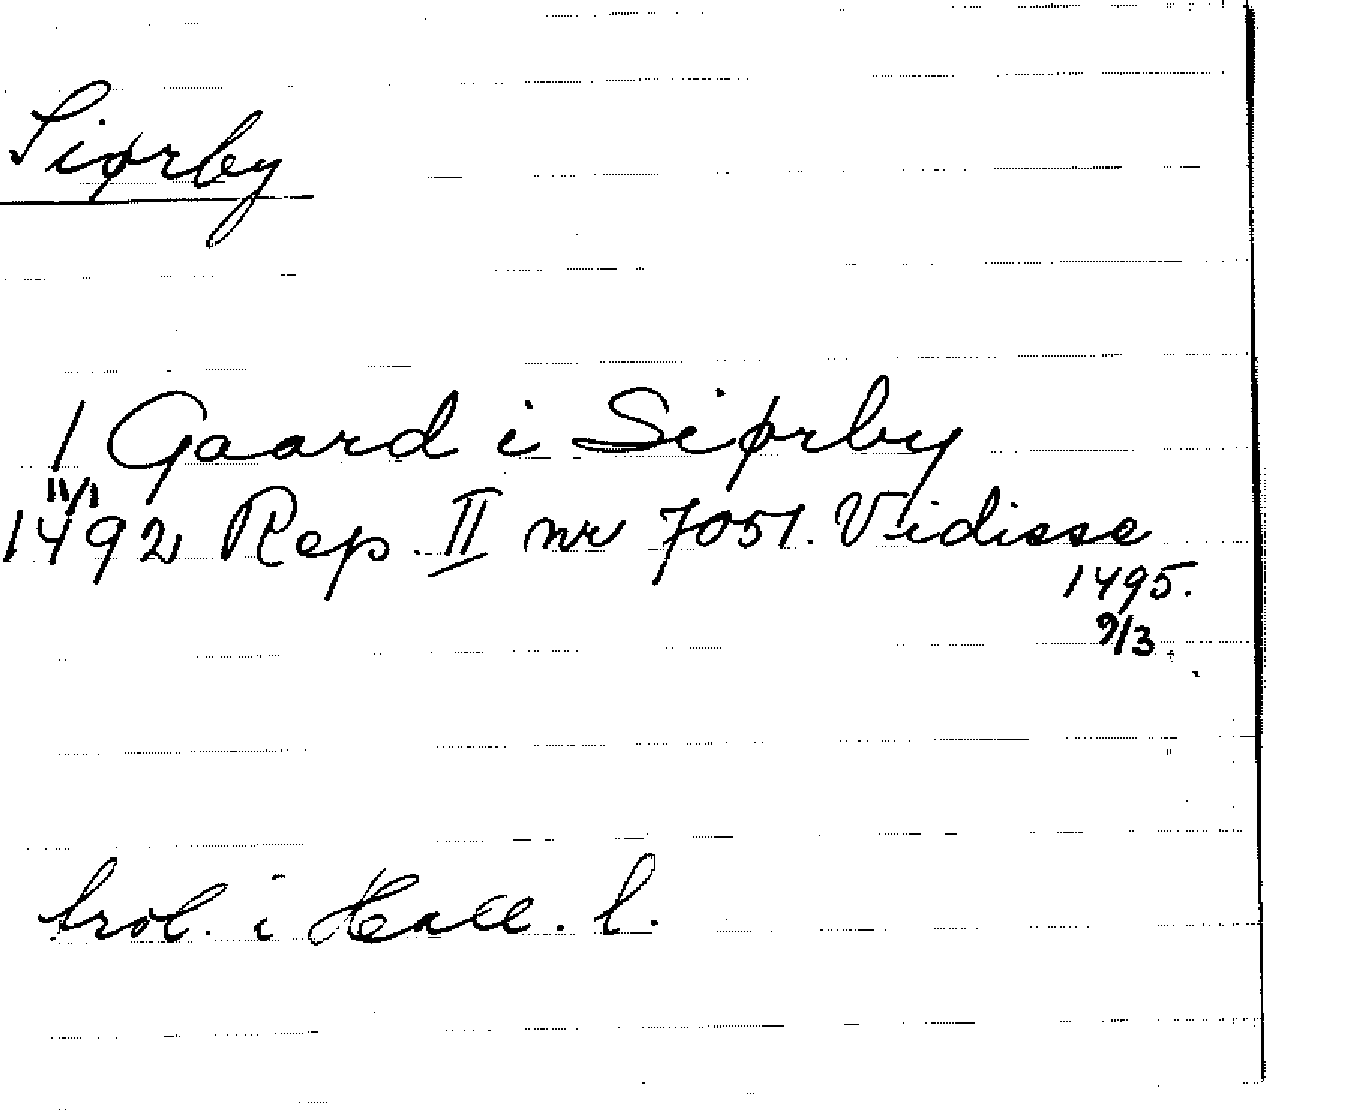 Siørby
1 Gaard i Siørby
11/1
1492 Rep. II nr 7051. Vidisse
1495.
9/3.
trol. i Hall. l.